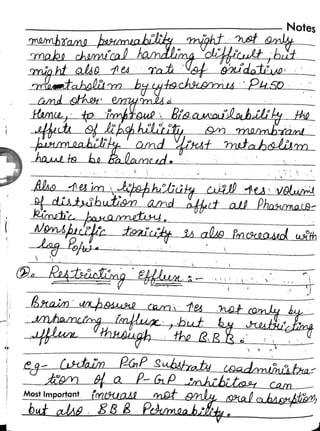 Notes
membrane permeability might not only
make chemical handling difficult, but
might also ↑es rate of oxidative
metabolism by cytochromes P450
and other enzymes.
Hence, to improve Bioavailability the
effects of lipophilicity on membrane
permeability and first metabolism
have to be Balanced.
Also ↑es in lipophilicity will ↑es volume
of distribution and affect all Pharmaco-
kinetic parameters.
Nonspecific toxicity is also increased with
log Po/w.
Restricting Efflux :-
Brain exposure can ↑es not only by
enhancing influx, but by restricting
efflux through the B.B.B.
eg- Certain P-GP Substrate coadministra-
tion of a P-GP inhibitor can
Most Important increase not only oral absorption,
but also BBB Permeability.